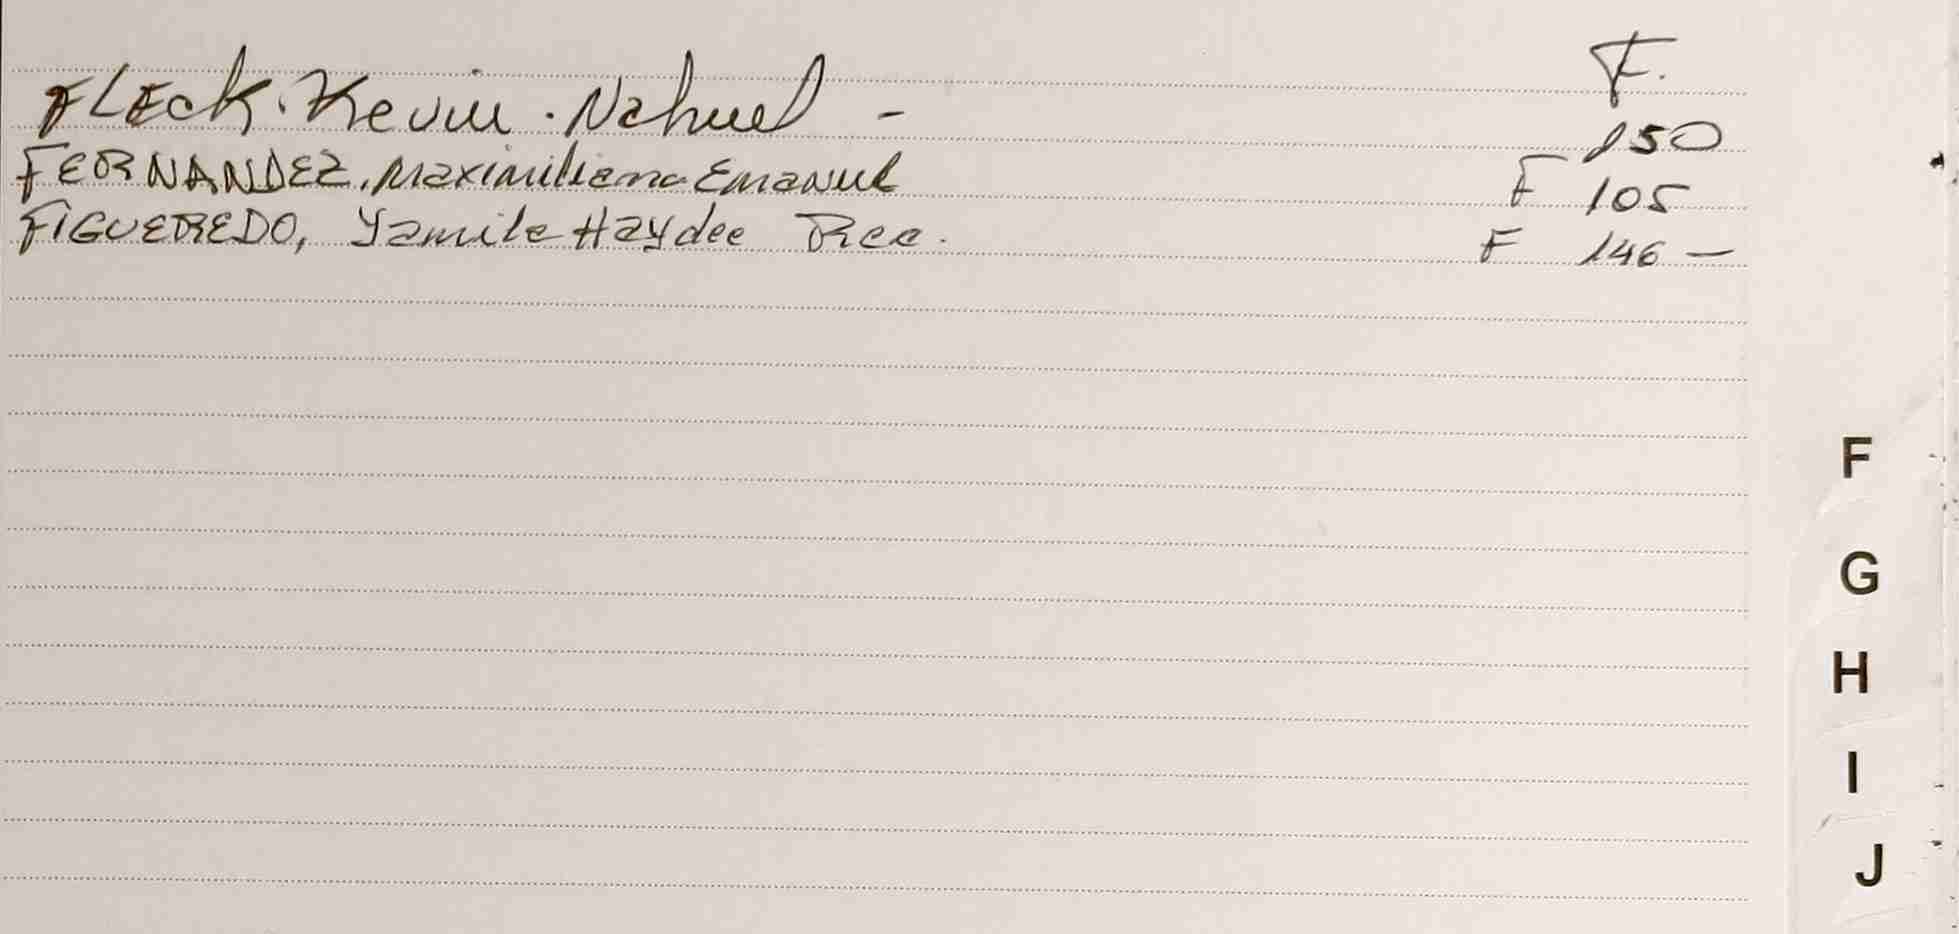 F.
FLEck. Kevin. Nahuel - 150
FERNANDEZ, Maximiliano Emanuel F 105
FIGUEREDO, Yamila Haydee Rec. F 146 —
F
G
H
I
J